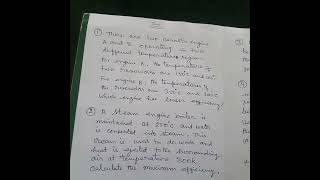 ① There are two carnot engine
A and B operating in two
different temperature region.
For engine A, the temperature of
two reservoirs are 150°C and
For engine B, the temperature of
the reservoirs are 350°C and
Which engine has lesser efficiency?
② A steam engine boiler is
maintained at 250°C and water
is converted into steam. This
steam is used to do work and
heat is ejected to the surrounding
air at temperature 300K.
Calculate the maximum efficiency.